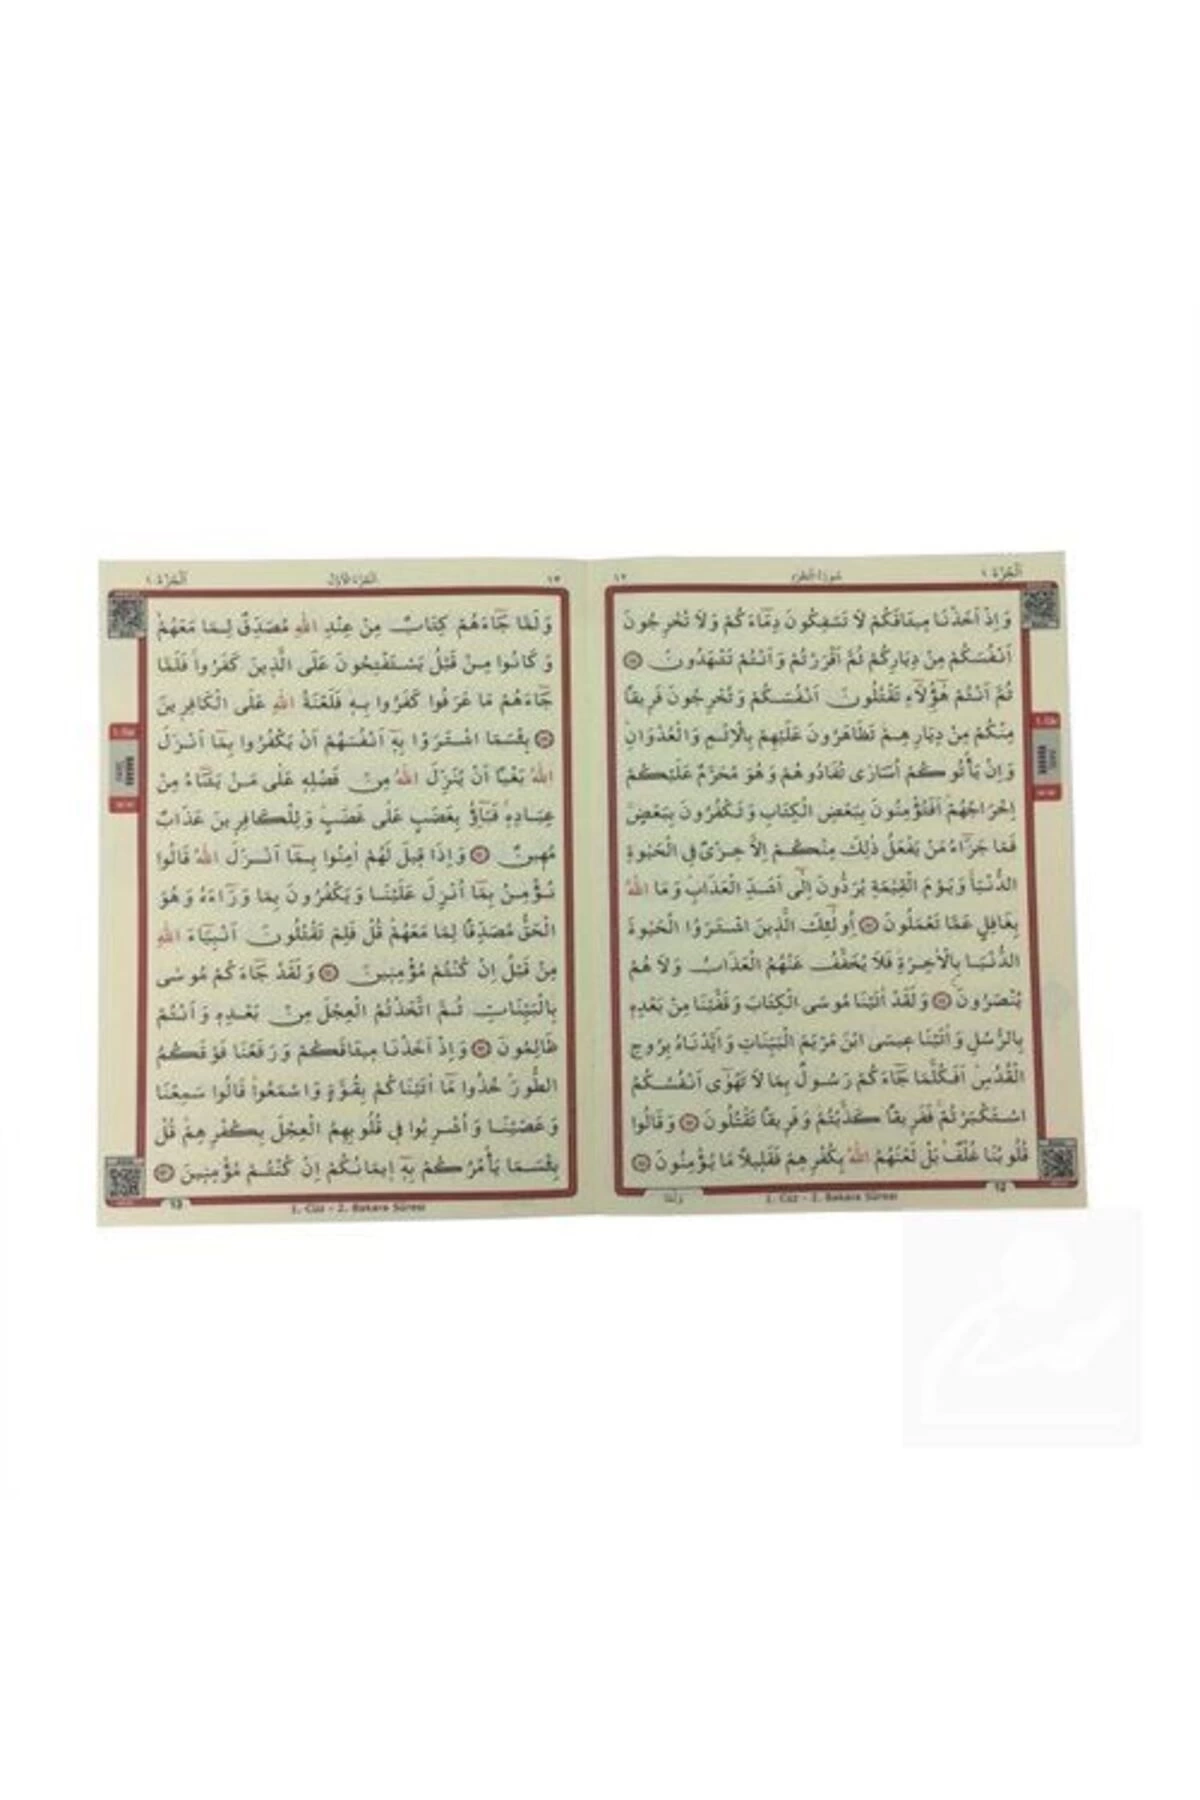 الجزء ١
سورة البقرة
١٢
وَاِذْ اَخَذْنَا م۪يثَاقَكُمْ لَا تَسْفِكُونَ دِمَٓاءَكُمْ وَلَا تُخْرِجُونَ
اَنْفُسَكُمْ مِنْ دِيَارِكُمْ ثُمَّ اَقْرَرْتُمْ وَاَنْتُمْ تَشْهَدُونَ
ثُمَّ اَنْتُمْ هٰٓؤُ۬لَٓاءِ تَقْتُلُونَ اَنْفُسَكُمْ وَتُخْرِجُونَ فَر۪يقًا
مِنْكُمْ مِنْ دِيَارِهِمْ تَظَاهَرُونَ عَلَيْهِمْ بِالْاِثْمِ وَالْعُدْوَانِ
وَاِنْ يَأْتُوكُمْ اُسَارٰى تُفَادُوهُمْ وَهُوَ مُحَرَّمٌ عَلَيْكُمْ
اِخْرَاجُهُمْ اَفَتُؤْمِنُونَ بِبَعْضِ الْكِتَابِ وَتَكْفُرُونَ بِبَعْضٍ
فَمَا جَزَٓاءُ مَنْ يَفْعَلُ ذٰلِكَ مِنْكُمْ اِلَّا خِزْيٌ فِي الْحَيٰوةِ
الدُّنْيَا وَيَوْمَ الْقِيٰمَةِ يُرَدُّونَ اِلٰٓى اَشَدِّ الْعَذَابِ وَمَا اللّٰهُ
بِغَافِلٍ عَمَّا تَعْمَلُونَ اُو۬لٰٓئِكَ الَّذ۪ينَ اشْتَرَوُا الْحَيٰوةَ
الدُّنْيَا بِالْاٰخِرَةِ فَلَا يُخَفَّفُ عَنْهُمُ الْعَذَابُ وَلَا هُمْ
يُنْصَرُونَ وَلَقَدْ اٰتَيْنَا مُوسَى الْكِتَابَ وَقَفَّيْنَا مِنْ بَعْدِه۪
بِالرُّسُلِ وَاٰتَيْنَا ع۪يسَى ابْنَ مَرْيَمَ الْبَيِّنَاتِ وَاَيَّدْنَاهُ بِرُوحِ
الْقُدُسِ اَفَكُلَّمَا جَٓاءَكُمْ رَسُولٌ بِمَا لَا تَهْوٰٓى اَنْفُسُكُمُ
اسْتَكْبَرْتُمْ فَفَر۪يقًا كَذَّبْتُمْ وَفَر۪يقًا تَقْتُلُونَ وَقَالُوا
قُلُوبُنَا غُلْفٌ بَلْ لَعَنَهُمُ اللّٰهُ بِكُفْرِهِمْ فَقَل۪يلًا مَا يُؤْمِنُونَ
12
1. Cüz - 2. Bakara Sûresi
وَلَمَّا
١٣
الجزء الاول
الجزء ١
وَلَمَّا جَٓاءَهُمْ كِتَابٌ مِنْ عِنْدِ اللّٰهِ مُصَدِّقٌ لِمَا مَعَهُمْ
وَكَانُوا مِنْ قَبْلُ يَسْتَفْتِحُونَ عَلَى الَّذ۪ينَ كَفَرُوا فَلَمَّا
جَٓاءَهُمْ مَا عَرَفُوا كَفَرُوا بِه۪ فَلَعْنَةُ اللّٰهِ عَلَى الْكَافِر۪ينَ
بِئْسَمَا اشْتَرَوْا بِه۪ٓ اَنْفُسَهُمْ اَنْ يَكْفُرُوا بِمَٓا اَنْزَلَ
اللّٰهُ بَغْيًا اَنْ يُنَزِّلَ اللّٰهُ مِنْ فَضْلِه۪ عَلٰى مَنْ يَشَٓاءُ مِنْ
عِبَادِه۪ فَبَٓاؤُ۫ بِغَضَبٍ عَلٰى غَضَبٍ وَلِلْكَافِر۪ينَ عَذَابٌ
مُه۪ينٌ وَاِذَا ق۪يلَ لَهُمْ اٰمِنُوا بِمَٓا اَنْزَلَ اللّٰهُ قَالُوا
نُؤْمِنُ بِمَٓا اُنْزِلَ عَلَيْنَا وَيَكْفُرُونَ بِمَا وَرَٓاءَهُ وَهُوَ
الْحَقُّ مُصَدِّقًا لِمَا مَعَهُمْ قُلْ فَلِمَ تَقْتُلُونَ اَنْبِيَٓاءَ اللّٰهِ
مِنْ قَبْلُ اِنْ كُنْتُمْ مُؤْمِن۪ينَ وَلَقَدْ جَٓاءَكُمْ مُوسٰى
بِالْبَيِّنَاتِ ثُمَّ اتَّخَذْتُمُ الْعِجْلَ مِنْ بَعْدِه۪ وَاَنْتُمْ
ظَالِمُونَ وَاِذْ اَخَذْنَا م۪يثَاقَكُمْ وَرَفَعْنَا فَوْقَكُمُ
الطُّورَ خُذُوا مَٓا اٰتَيْنَاكُمْ بِقُوَّةٍ وَاسْمَعُوا قَالُوا سَمِعْنَا
وَعَصَيْنَا وَاُشْرِبُوا ف۪ي قُلُوبِهِمُ الْعِجْلَ بِكُفْرِهِمْ قُلْ
بِئْسَمَا يَأْمُرُكُمْ بِه۪ٓ ا۪يمَانُكُمْ اِنْ كُنْتُمْ مُؤْمِن۪ينَ
1. Cüz - 2. Bakara Sûresi
13